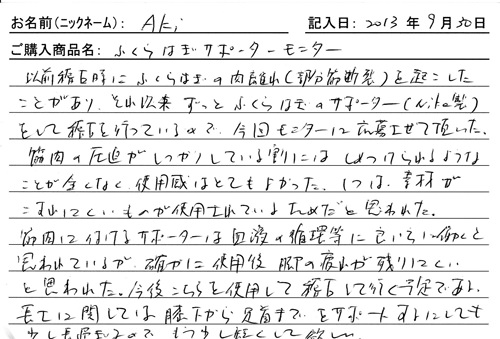 お名前(ニックネーム): Aki 記入日: 2013 年 9 月 30 日
ご購入商品名: ふくらはぎサポーターモニター
以前稽古時にふくらはぎの肉離れ(部分筋断裂)を起こした
ことがあり、それ以来ずっとふくらはぎのサポーター(Nike製)
をして稽古を行っているので、今回モニターに応募させて頂いた。
筋肉の圧迫がしっかりしている割には しめつけられるような
ことが全くなく、使用感はとてもよかった。1つは、素材が
こすれにくいものが使用されているためだと思われた。
筋肉に付けるサポーターは血液の循環等に良いらに働くと
思われているが、確かに使用後 脚の疲れが残りにくい
と思われた。今後こちらを使用して稽古して行く予定である。
長さに関しては膝下から足首までをサポートするにしても
少し長過ぎるので もう少し短くして欲しい